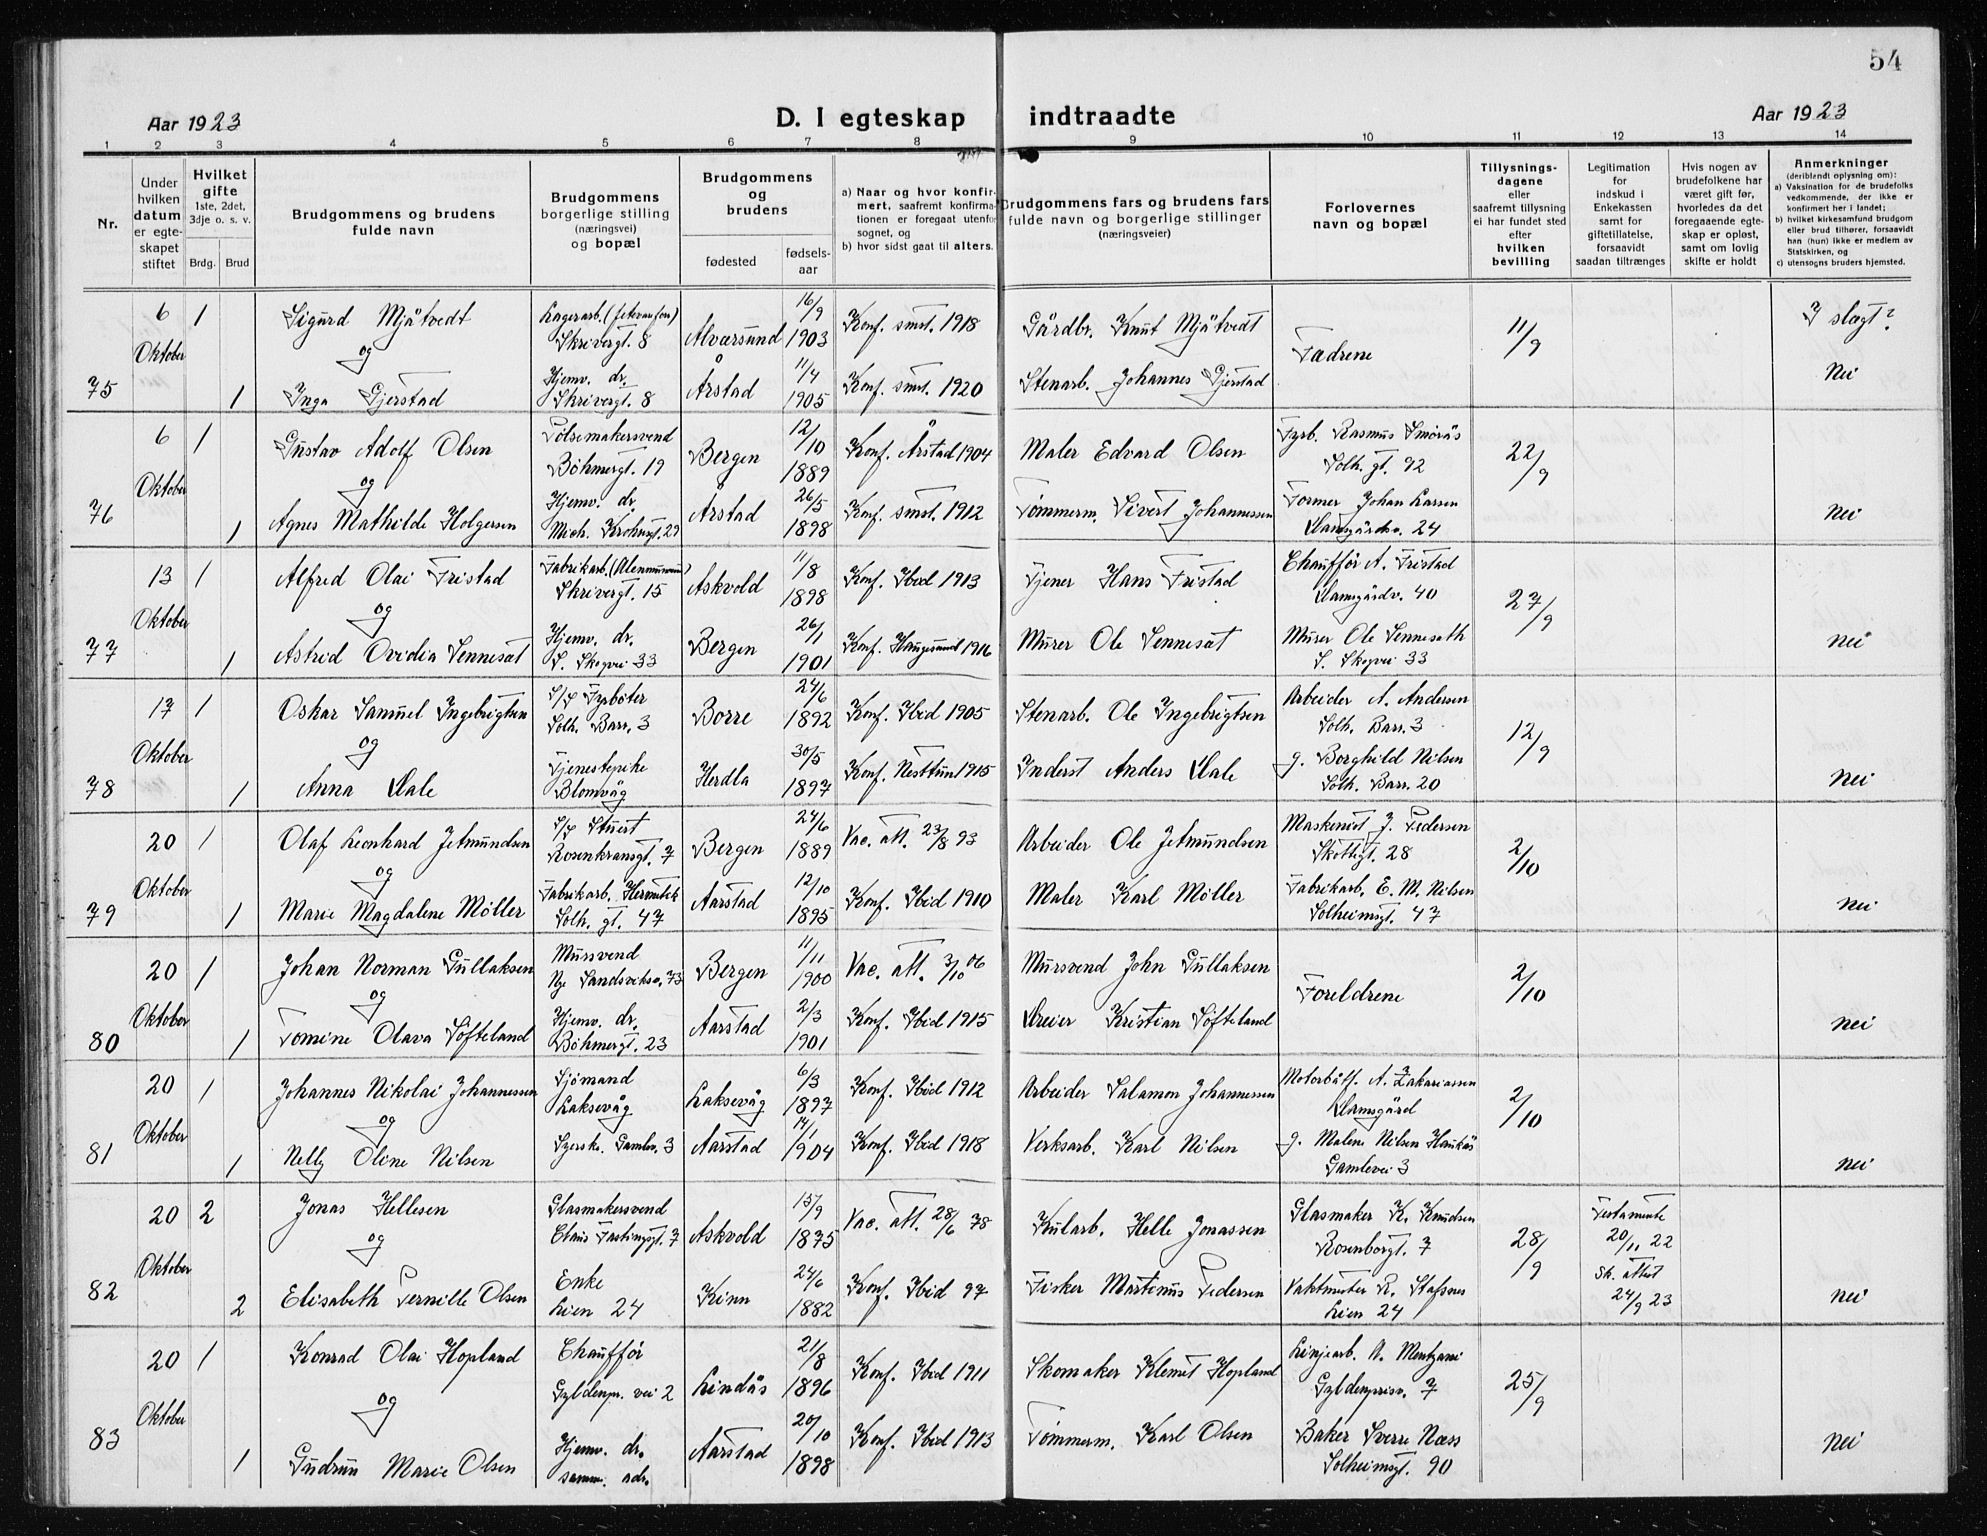 54
Aar 1923
D. I egteskap indtraadte
Aar 1923
1 2 3 4 5 6 7 8 9 10 11 12 13 14
Nr.
Under hvilken datum er egteskapet stiftet
Hvilket gifte 1ste, 2det, 3dje o. s. v.
Brdg. Brud
Brudgommens og brudens fulde navn
Brudgommens borgerlige stilling (næringsvei) og bopæl
Brudgommens og brudens
fødested
fødsels-aar
a) Naar og hvor konfirmert, saafremt konfirmationen er foregaat utenfor sognet, og
b) hvor sidst gaat til alters.
Brudgommens fars og brudens fars fulde navn og borgerlige stillinger (næringsveier)
Forlovernes navn og bopæl
Tillysningsdagene eller saafremt tillysning ei har fundet sted efter hvilken bevilling
Legitimation for indskud i Enkekassen samt for giftetillatelse, forsaavidt saadan tiltrænges
Hvis nogen av brudefolkene har været gift før, hvorledes da det foregaaende egteskap er opløst, samt om lovlig skifte er holdt
Anmerkninger (deriblandt oplysning om):
a) Vaksination for de brudefolks vedkommende, der ikke er konfirmert her i landet;
b) hvilket kirkesamfund brudgom eller brud tilhører, forsaavidt han (hun) ikke er medlem av Statskirken, og
c) utensogns bruders hjemsted.
75 6 Oktober 1 Sigurd Mjåtvedt Lagerarb. Skrivergt. 8 Alværsund 16/9 1903 Konf. smst. 1918 Gårdbr. Knut Mjåtvedt Fædrene 11/9 I slægt?
og
1 Inga Gjerstad Hjemv. dr. Skrivergt. 8 Årstad 11/4 1905 Konf. smst. 1920 Stenarb. Johannes Gjerstad Nei
76 6 Oktober 1 Gustav Adolf Olsen Pølsemakersvend Bøhmergt. 19 Bergen 12/10 1889 Konf. Årstad 1904 Maler Edvard Olsen Fyrb. Rasmus Smørås Solh. gt. 92 22/9
og
1 Agnes Mathilde Holgersen Hjemv. dr. Mich. Krohnsgt. 29 Årstad 26/5 1898 Konf. smst. 1912 Tømmerm. Sivert Johannessen Former Johan Larsen Damsgårdsv. 24 Nei
77 13 Oktober 1 Alfred Olai Fristad Fabrikarb. Skrivergt. 15 Askvold 11/8 1898 Konf. Ibid 1913 Tjener Hans Fristad Chauffør A. Fristad Damsgårdv. 40 27/9
og
1 Astrid Ovidia Sennesat Hjemv. dr. S. Skogvei 33 Bergen 26/1 1901 Konf. Haugesund 1916 Murer Ole Sennesat Murer Ole Senneseth S. Skogvei 33 nei
78 17 Oktober 1 Oskar Samuel Ingebrigtsen S/S Fyrbøter Solh. Barr. 3 Borre 24/6 1892 Konf. Ibid 1905 Stenarb. Ole Ingebrigtsen Arbeider A. Andersen Solh. Barr. 3 12/9
og
1 Anna Dale Tjenestepike Blomvåg Herdla 30/5 1897 Konf. Nesttun 1915 Inderst Anders Dale g. Borghild Nilsen Solh. Barr. 20 nei
79 20 Oktober 1 Olaf Leonhard Jetmundsen S/S Stuert Rosenkransgt. 7 Bergen 24/6 1889 Vac. att. 23/8 93 Arbeider Ole Jetmundsen Maskenist J. Pedersen Skottegt. 28 2/10
og
1 Marie Magdalene Møller Fabrikarb. Hermetik Solh. gt. 47 Aarstad 12/10 1895 Konf. Ibid 1910 Maler Karl Møller Fabrikarb. E. M. Nilsen Solheimsgt. 47 nei
80 20 Oktober 1 Johan Norman Gullaksen Mursvend Nye Sandsviksv. 73 Bergen 11/11 1900 Vac. att. 3/10 06 Mursvend John Gullaksen Foreldrene 2/10
og
1 Tomine Olava Søfteland Hjemv. dr. Bøhmergt. 23 Aarstad 2/3 1901 Konf. Ibid 1915 Dreier Kristian Søfteland nei
81 20 Oktober 1 Johannes Nikolai Johannessen Sjømand Laksevåg Laksevåg 6/3 1897 Konf. Ibid 1912 Arbeider Salamon Johannessen Motorbåtf. A. Zakariassen Damsgård 2/10
og
1 Nelly Oline Nilsen Syerske. Gamlev. 3 Aarstad 14/1 1904 Konf. Ibid 1918 Verksarb. Karl Nilsen g. Malene Nilsen Haukås Gamlevei 3 nei
82 20 Oktober 2 Jonas Hellesen Glasmakersvend Claus Fastingsgt. 7 Askvold 15/9 1875 Vac. att. 28/6 78 Kularb. Helle Jonassen Glasmaker K. Knudsen Rosenborgt. 7 28/9 Testamente 20/11 22
og
2 Elisabeth Pernille Olsen Enke Lien 24 Kinn 24/6 1882 Konf. Ibid 97 Fisker Martinus Pedersen Vaktmester R. Stafsnes Lien 24 Sk. attest 24/9 23 nei
83 20 Oktober 1 Konrad Olai Hopland Chauffør Gyldenpr. vei 2 Lindås 21/8 1896 Konf. Ibid 1911 Skomaker Klemet Hopland Linjearb. A. Mentzoni Gyldenprisv. 7 25/9
og
1 Gudrun Marie Olsen Hjemv. dr. samm. adr. Aarstad 20/10 1898 Konf. Ibid 1913 Tømmerm. Karl Olsen Baker Sverre Næss Solheimsgt. 90 nei